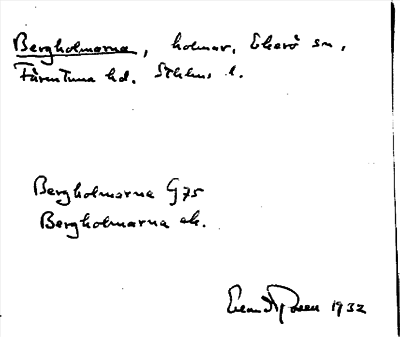 Bergholmarna, holmar, Ekerö sn,
Färentuna hd. Sthlms l.
Bergholmarna G 75
Bergholmarna ek.
1932